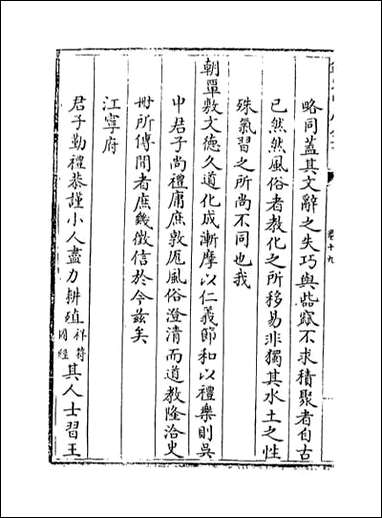 略同蓋其文辭之失巧與啙窳不求積聚者自古
已然然風俗者教化之所移易非獨其水土之性
殊氣習之所尚不同也我
朝單敷文德久道化成漸摩以仁義節和以禮樂則吳
中君子尚禮庸庶敦厖風俗澄清而道教隆洽史
冊所傳聞者庶幾徵信於今茲矣
江寧府
君子勤禮恭謹小人盡力耕殖祥符圖經其人士習王
卷十九